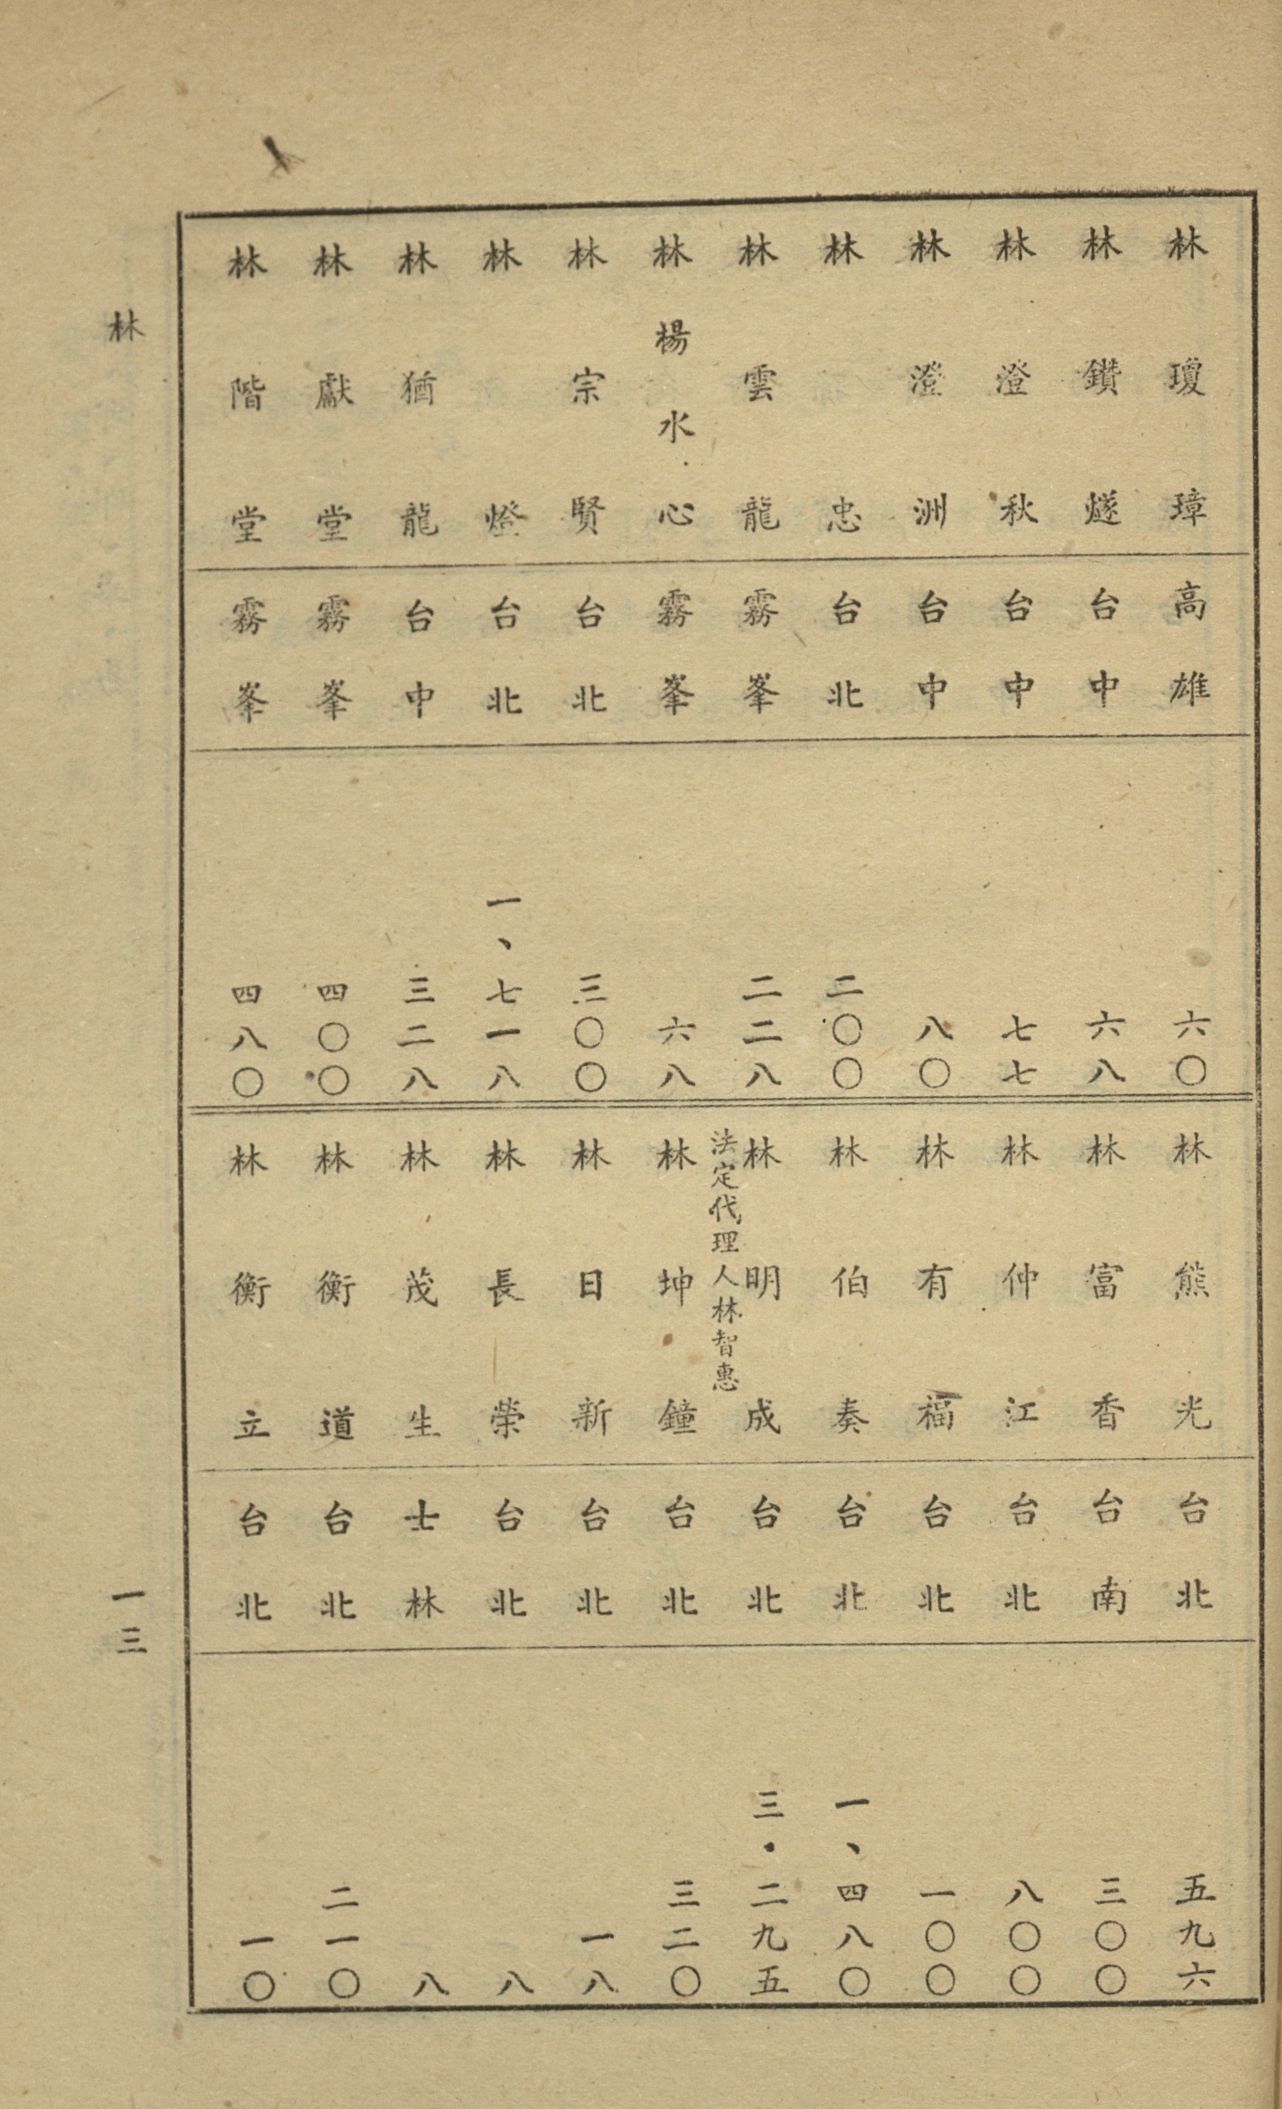 林瓊璋 高雄 六〇
林鑽燧 台中 六八
林澄秋 台中 七七
林澄洲 台中 八〇
林忠 台北 二〇〇
林雲龍 霧峯 二二八
林楊水心 霧峯 六八
林宗賢 台北 三〇〇
林燈 台北 一、七一八
林猶龍 台中 三二八
林獻堂 霧峯 四〇〇
林階堂 霧峯 四八〇
林熊光 台北 五九六
林富香 台南 三〇〇
林仲江 台北 八〇〇
林有福 台北 一〇〇
林伯奏 台北 一、四八〇
林明成 台北 三·二九五
法定代理人林智惠
林坤鐘 台北 三二〇
林日新 台北 一八
林長榮 台北 八
林茂生 士林 八
林衡道 台北 二一〇
林衡立 台北 一〇
林 一三